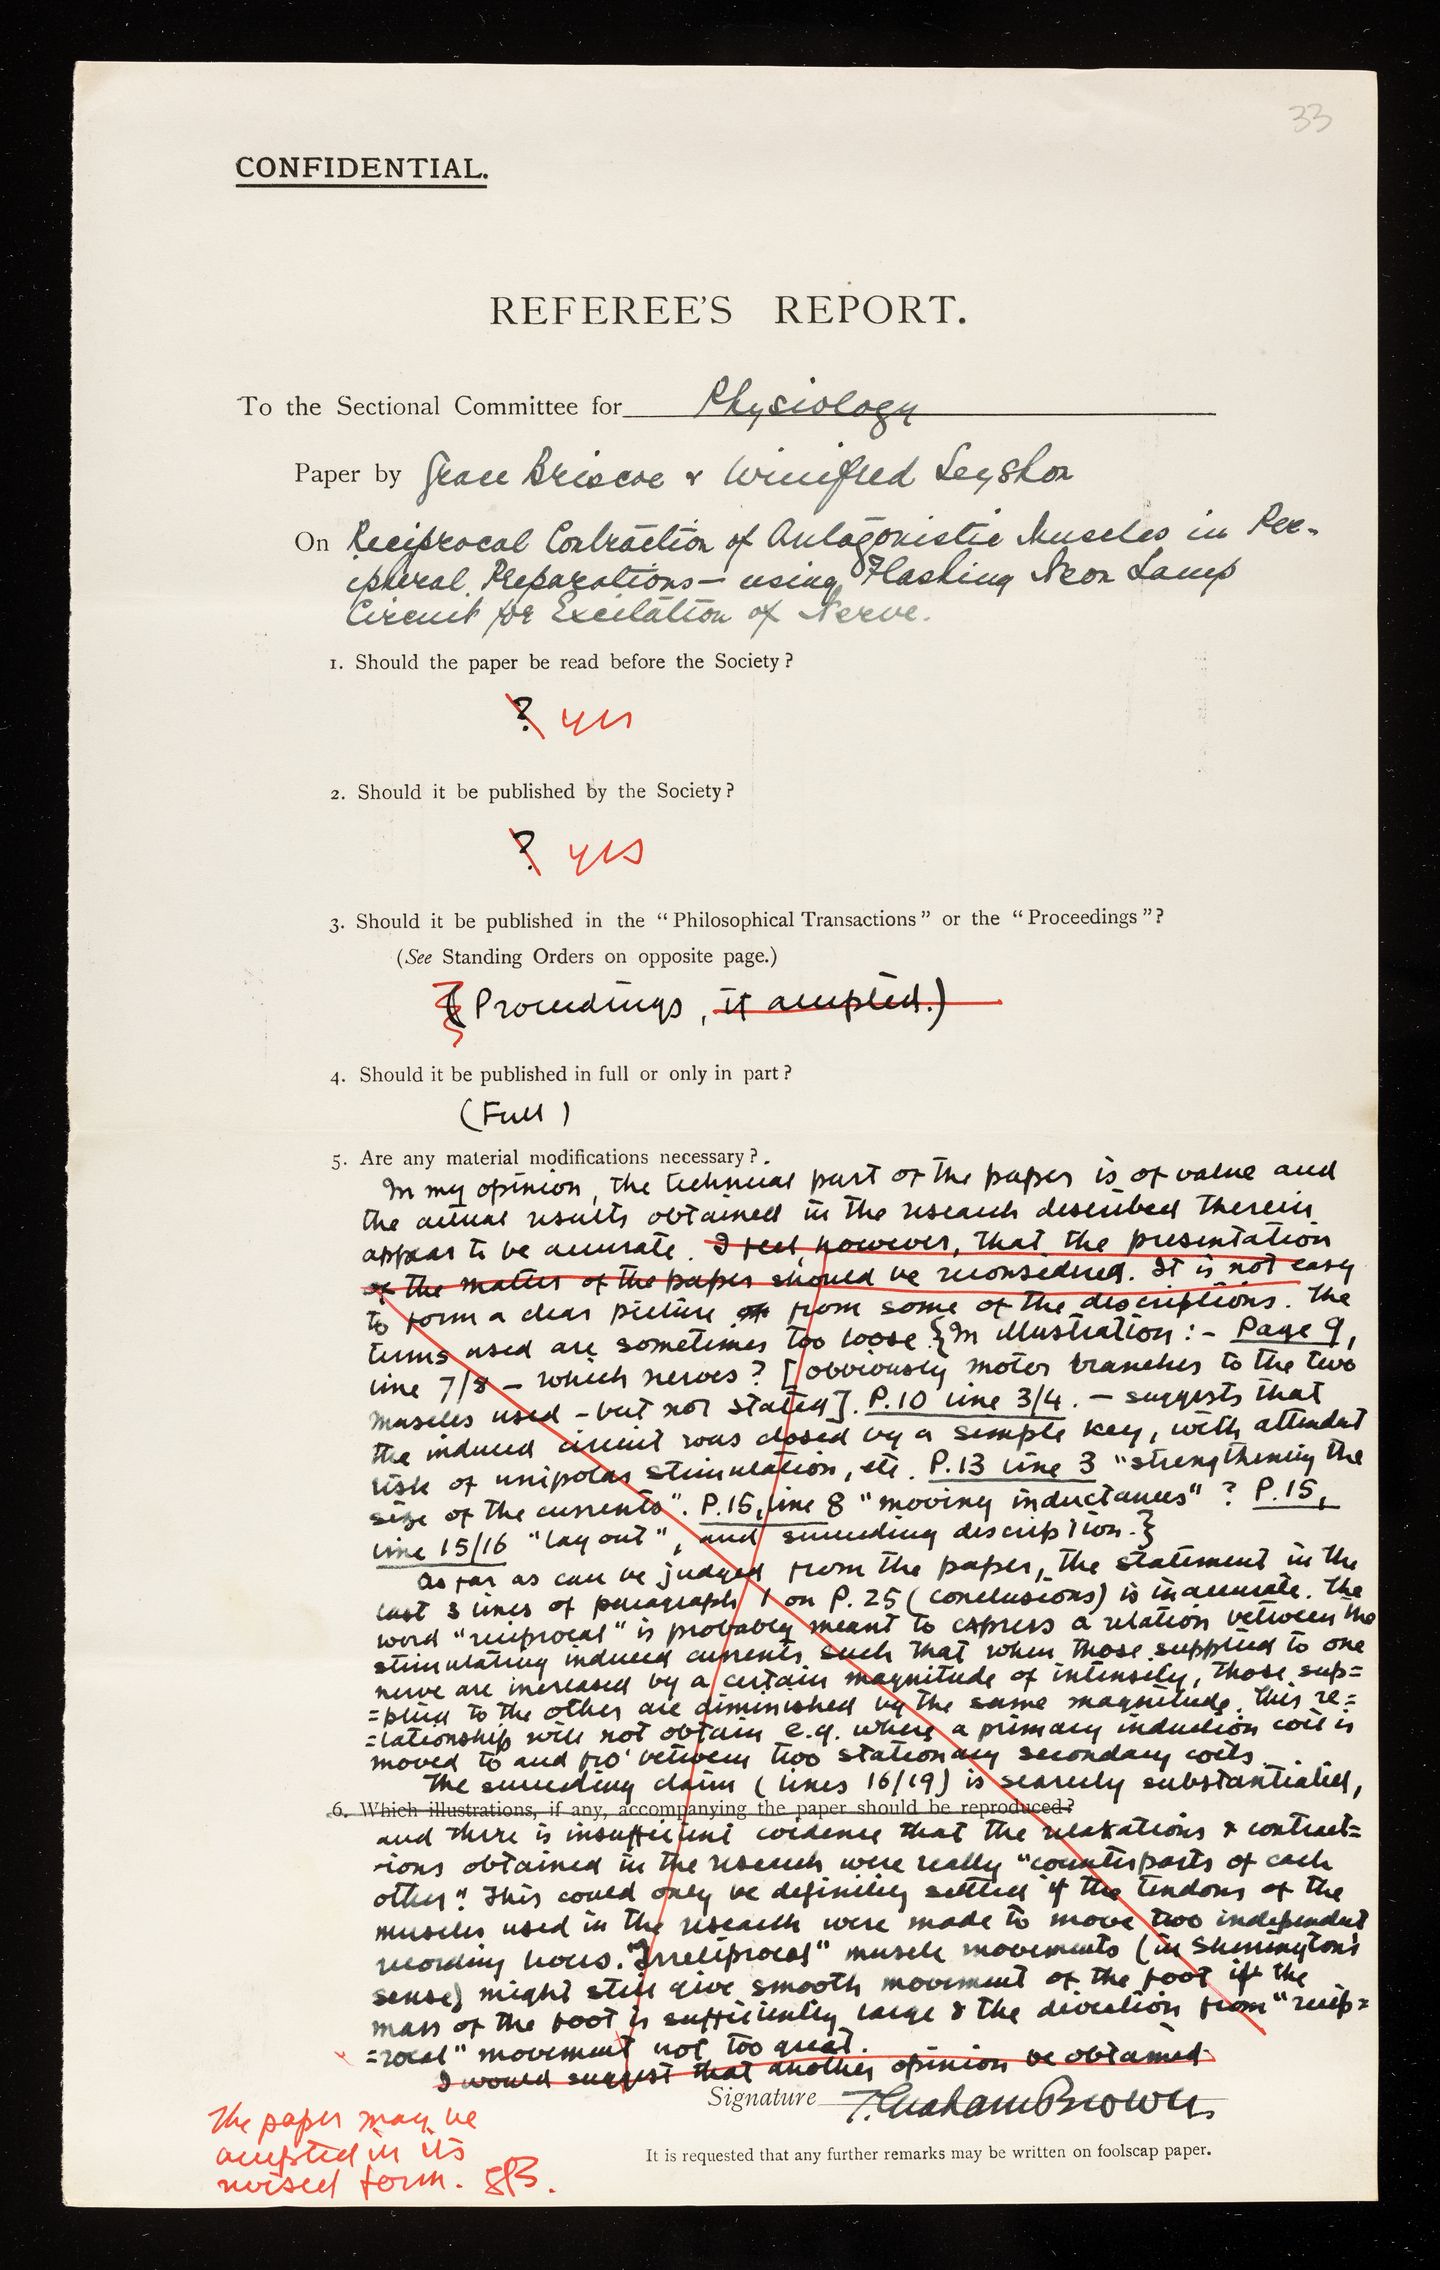 33
CONFIDENTIAL.
REFEREE'S REPORT.
To the Sectional Committee for Physiology
Paper by Grace Briscoe & Winifred Leyshon
On Reciprocal Contraction of Antagonistic Muscles in Per-
ipheral Preparations— using Flashing Neon Lamp
Circuit for Excitation of Nerve.
1. Should the paper be read before the Society?
? yes
2. Should it be published by the Society?
? yes
3. Should it be published in the "Philosophical Transactions" or the "Proceedings"?
(See Standing Orders on opposite page.)
(Proceedings, if accepted.)
4. Should it be published in full or only in part?
(Full)
5. Are any material modifications necessary?
In my opinion, the technical part of the paper is of value and
the actual results obtained in the research described therein
appear to be accurate. I feel, however, that the presentation
of the matter of the paper should be reconsidered. It is not easy
to form a clear picture from some of the descriptions. The
terms used are sometimes too loose. {In illustration:- Page 9,
line 7/8 – which nerves? [obviously motor branches to the two
muscles used – but not stated]. P.10 line 3/4. – suggests that
the induced circuit was closed by a simple key, with attendant
risk of unipolar stimulation, etc. P.13 line 3 "strengthening the
size of the currents". P.15, line 8 "moving inductances"? P.15,
line 15/16 "lay out", and succeeding description.}
As far as can be judged from the paper, the statement in the
last 3 lines of paragraph 1 on P. 25 (conclusions) is inaccurate. The
word "reciprocal" is probably meant to express a relation between the
stimulating induced currents such that when those supplied to one
nerve are increased by a certain magnitude of intensity, those sup=
=plied to the other are diminished by the same magnitude. This re=
=lationship will not obtain e.g. where a primary induction coil is
moved to and fro' between two stationary secondary coils.
The succeeding claim (lines 16/19) is scarcely substantiated,
6. Which illustrations, if any, accompanying the paper should be reproduced?
and there is insufficient evidence that the relaxations & contract=
-ions obtained in the research were really "counterparts of each
other". This could only be definitely settled if the tendons of the
muscles used in the research were made to move two independent
recording levers. "Irreciprocal" muscle movements (in Sherrington's
sense) might still give smooth movement of the foot if the
mass of the foot is sufficiently large & the direction from "recip=
=rocal" movement not too great.
I would suggest that another opinion be obtained.
Signature T. Graham Brown
The paper may be
accepted in its
revised form. GB.
It is requested that any further remarks may be written on foolscap paper.